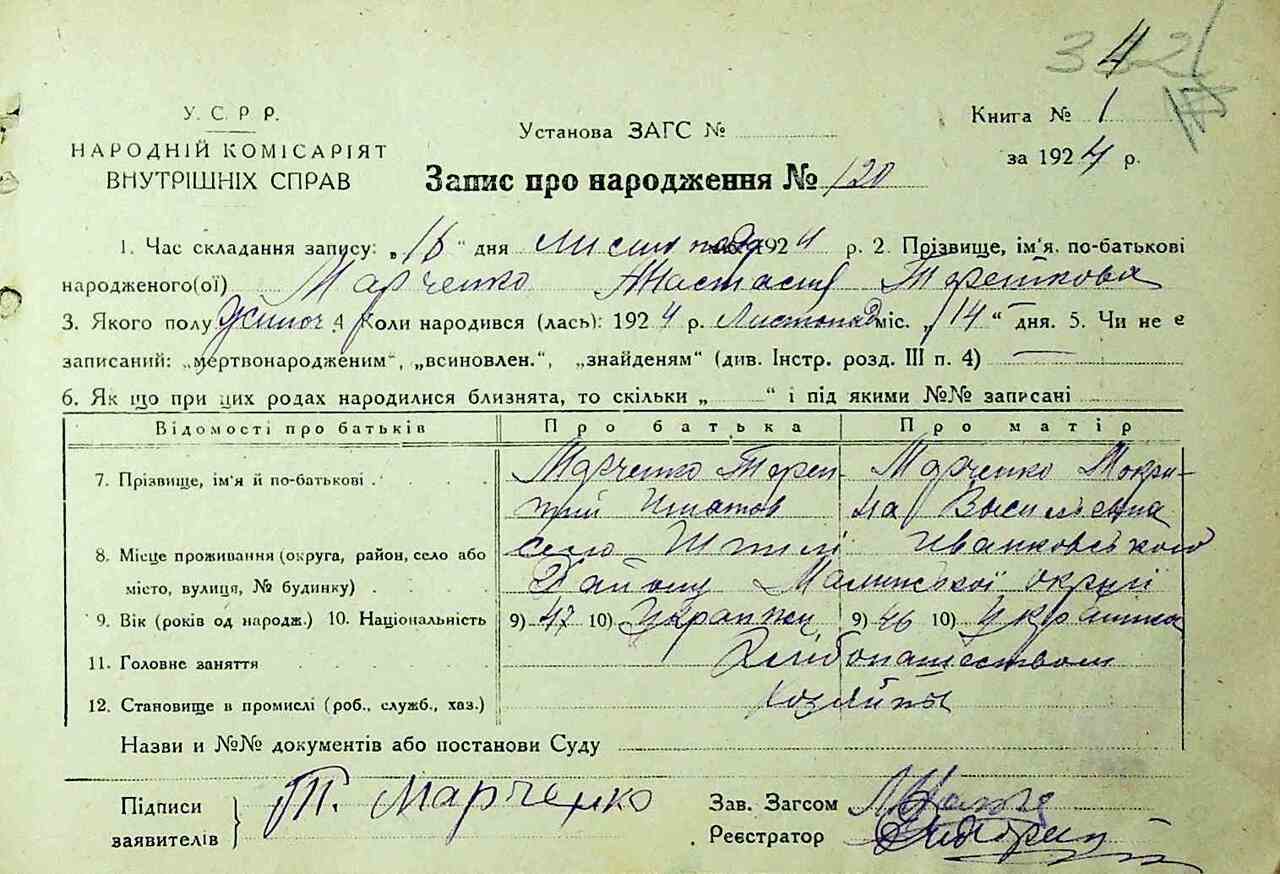 342
4
У. С. Р Р.
НАРОДНІЙ КОМІСАРІЯТ
ВНУТРІШНІХ СПРАВ
Установа ЗАГС №
Книга № 1
за 1924 р.
Запис про народження № 120
1. Час складання запису: „16“ дня Листопада 1924 р. 2. Прізвище, ім'я. по-батькові
народженого(ої) Марченко Настасия
3. Якого полу Жіноч 4 Коли народився (лась): 1924 р. Листопад міс. „14“ дня. 5. Чи не є
записаний: „мертвонародженим“, „всиновлен.“, „знайденям“ (див. Інстр. розд. III п. 4)
6. Як що при цих родах народилися близнята, то скільки „ “ і під якими №№ записані
Відомості про батьків Про батька Про матір
7. Прізвище, ім'я й по-батькові Марченко Терен- Марченко Мокри-
тий Игнатов на Василівна
8. Місце проживання (округа, район, село або село Шпилі Иванковського
місто, вулиця, № будинку) Району Малинської округи
9. Вік (років од народж.) 10. Національність 9) 47 10) Украинец 9) 46 10) Украинка
11. Головне заняття Хлибопашеством
12. Становище в промислі (роб., служб., хаз.) хозяйны
Назви и №№ документів або постанови Суду
Підписи Т. Марченко Зав. Загсом
заявителів Реєстратор